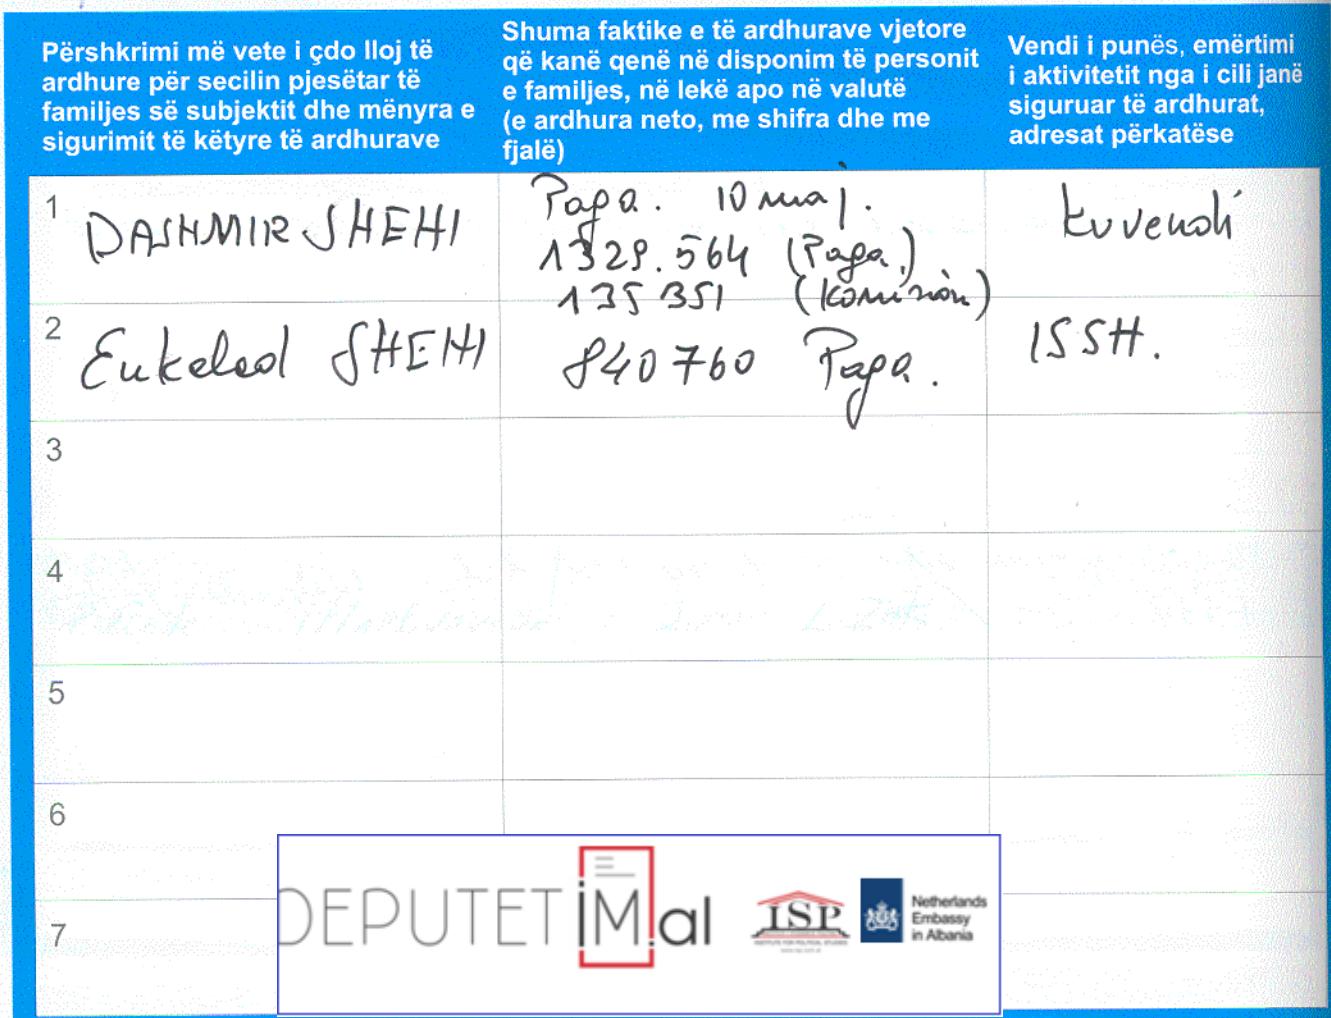 Përshkrimi më vete i çdo lloj të
ardhure për secilin pjesëtar të
familjes së subjektit dhe mënyra e
sigurimit të këtyre të ardhurave
Shuma faktike e të ardhurave vjetore
që kanë qenë në disponim të personit
e familjes, në lekë apo në valutë
(e ardhura neto, me shifra dhe me
fjalë)
Vendi i punës, emërtimi
i aktivitetit nga i cili janë
siguruar të ardhurat,
adresat përkatëse
1
DASHMIR SHEHI
Paga. 10 muaj.
1329.564 (Paga.)
135 351 (Komision)
Kuvendi
2
Enkeled SHEHI
840760 Paga.
ISSH.
3
4
5
6
7
DEPUTETiM.al
ISP
Netherlands
Embassy
in Albania